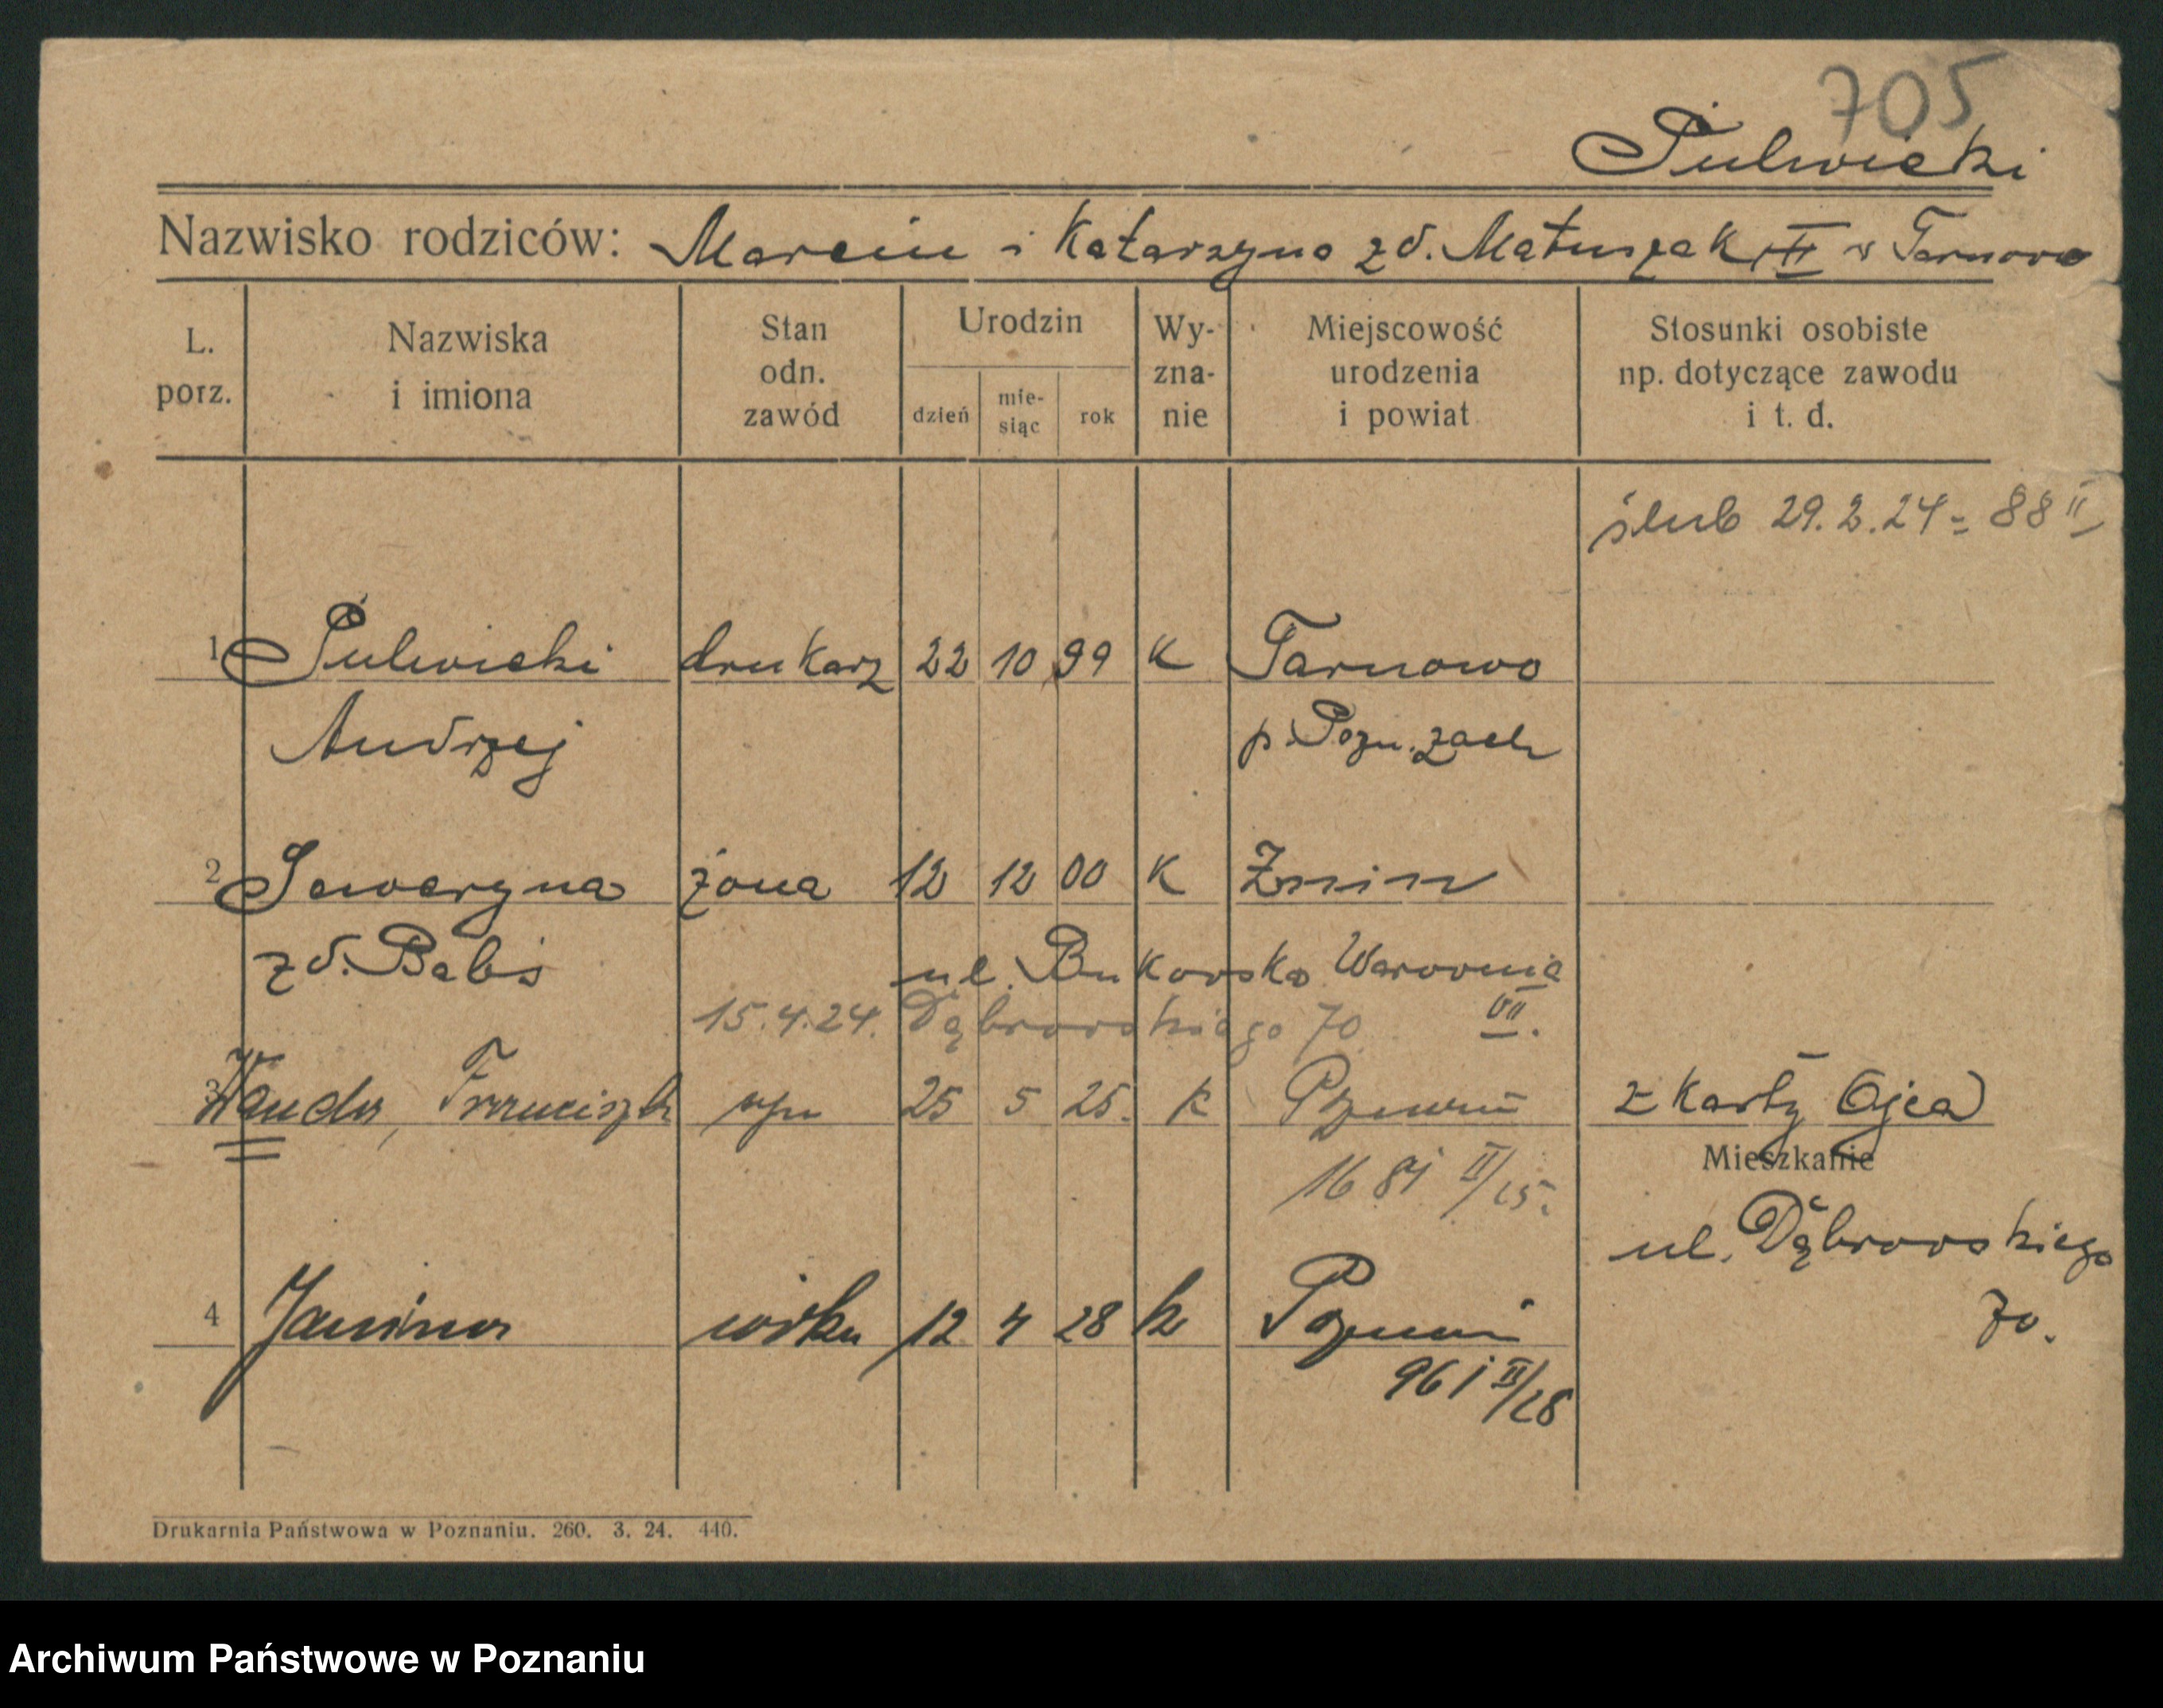 705
Pulwicki
Nazwisko rodziców: Marcin i Katarzyna zd. Matuszak w Tarnowo
L. porz.
Nazwiska i imiona
Stan odn. zawód
Urodzin
dzień
mie-siąc
rok
Wy-zna-nie
Miejscowość urodzenia i powiat
Stosunki osobiste np. dotyczące zawodu i t. d.
ślub 29.2.24 = 88 II
1 Pulwicki drukarz 22 10 99 K Tarnowo
Andrzej p. Pozn. zach
2 Seweryna żona 12 12 00 K Żnin
zd. Babś ul. Bukowska Warownia
15.4.24. Dąbrowskiego 70 VII.
3 Wanda, Franciszk 25 5 25. k Poznań z karty Ojca
Mieszkanie
1681 II/25.
ul. Dąbrowskiego
70.
4 Janina córka 12 4 28 k Poznań
961 II/28
Drukarnia Państwowa w Poznaniu. 260. 3. 24. 440.
Archiwum Państwowe w Poznaniu